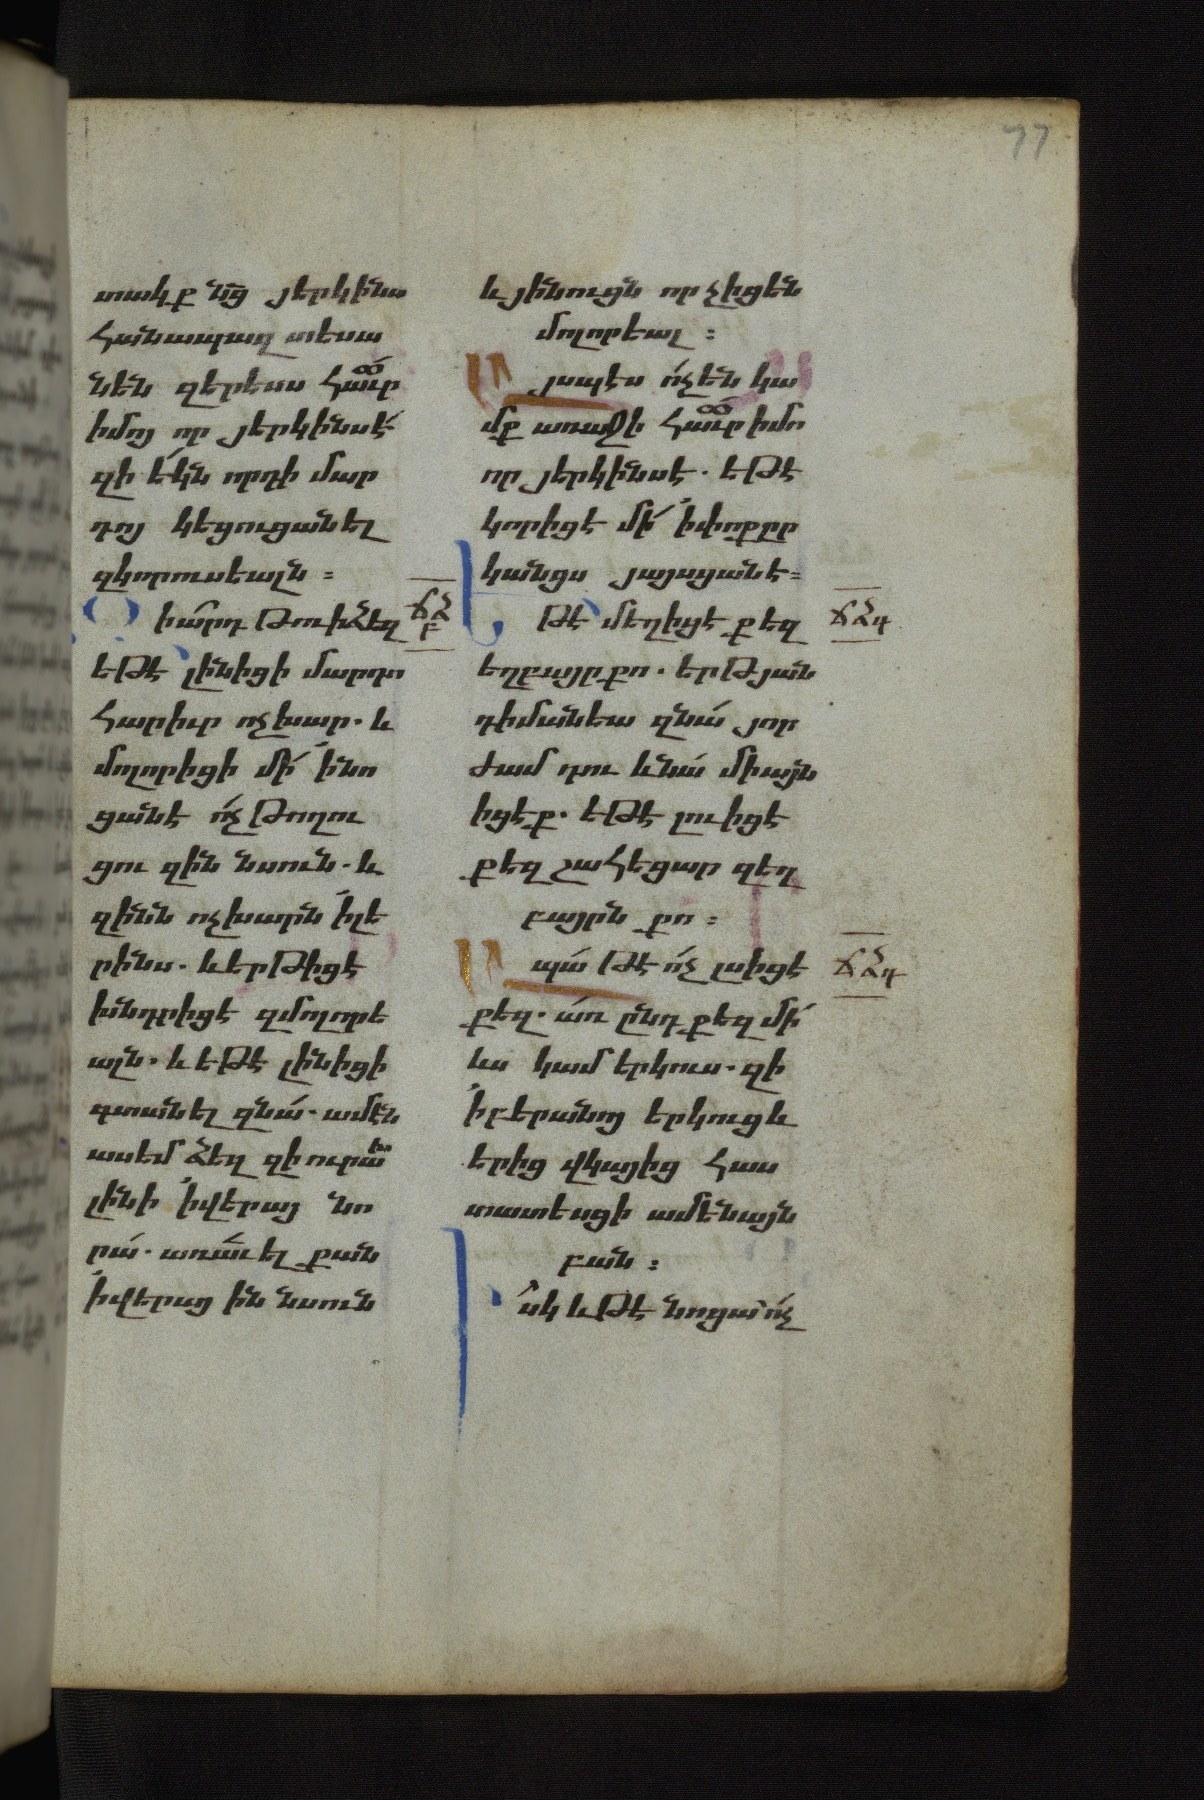 77
տակք նց յերկինս
հանապազ տեսա
նեն զերեսս հաւր
իմոյ որ յերկինսէ
զի եկն որդի մար
դոյ կեցուցանել
զկորուսեալն ։
Զիարդ թուի ձեզ
եթէ լինիցի մարդո
հարիւր ոչխար. և
մոլորիցի մի ինո
ցանէ ոչ թողու
ցու զին նսուն. և
զինն ոչխարն ի լե
րինս. և երթիցէ
խնդրիցէ զմոլորե
ալն. և եթէ լինիցի
գտանել զնա. ամէն
ասեմ ձեզ զի ուրախ
լինի ի վերայ նո
րա. առաւել քան
ի վերայ ին նսուն
և յինուցն որ չիցեն
մոլորեալ ։
Այսպէս ոչ են կա
մք առաջի հաւր իմո
որ յերկինսէ. եթէ
կորիցէ մի ի փոքրը
կանցս յայսցանէ ։
Եթէ մեղիցէ քեզ
եղբայր քո. երթ յան
դիմանեա զնա յոր
ժամ դու և նա միայն
իցէք. եթէ լուիցէ
քեզ շահեցար զեղ
բայրն քո ։
Ապա թէ ոչ լսիցէ
քեզ. առ ընդ քեզ մի
ևս կամ երկուս. զի
ի բերանոյ երկուց և
երից վկայից հաս
տատեսցի ամենայն
բան ։
Իսկ և թէ նոցա ոչ
ՃՁ
Բ
ՃՁԳ
ՃՁԴ